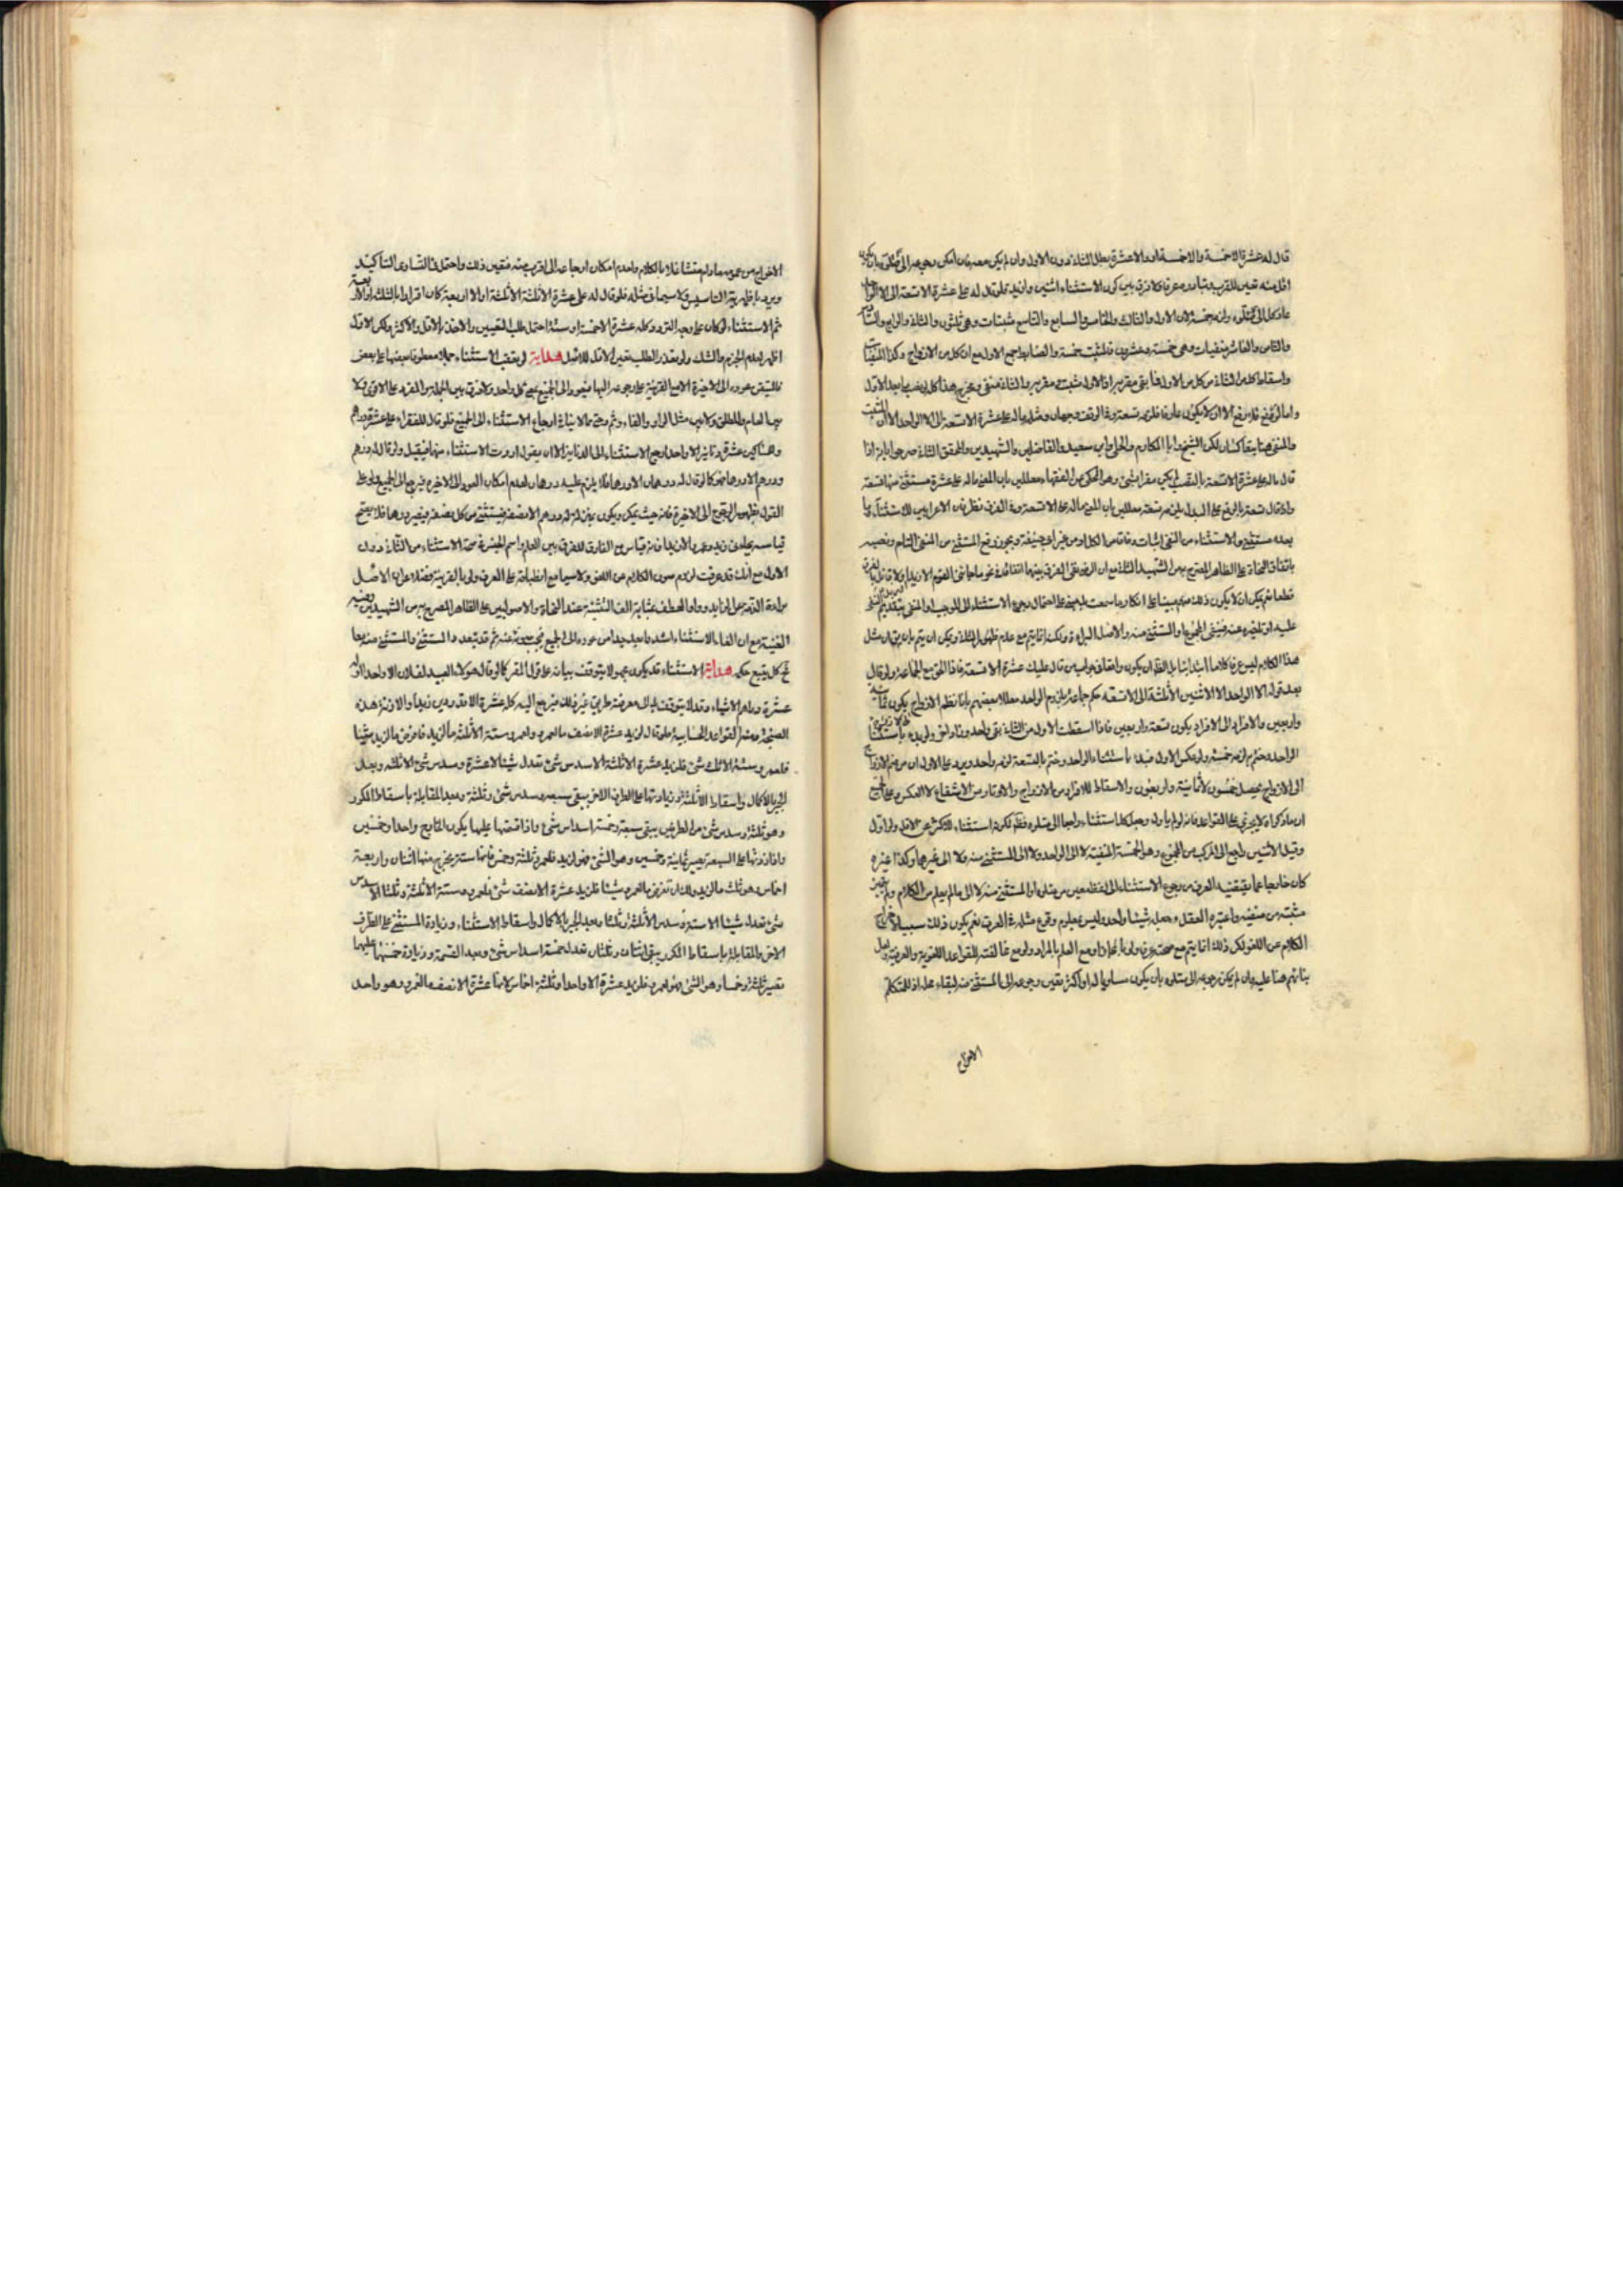 قال له عشرة الا خمسة والا خمسة او الا عشرة بطل الثانية دون الاول وان لم يكن معه فان امكن رجوعه الى متلوه بان يكون
اقل منه تعين للقرب وتبادره عرفا ولا فرق بين كون الاستثناء اثنين وازيد فلو قال له على عشرة الا تسعة الى الا الواحد
عاد كل الى متلوه ولزمه خمسة لان الاول والثالث والخامس والسابع والتاسع مثبتات وهي ثلثون والثاني والرابع والسادس
والثامن والعاشر منفيات وهي خمسة وعشرون فلتثبت خمسة والضابط جمع الاول مع ان كل من الازواج وكذا المنفيات
واسقاط كل من الثانية من كل من الاول فما بقي مقر به اذ الاول مثبت مقر به والثاني منفي ومخرج هذا كله بعد الاول
والمنفي هنا يتعاكسان لكن الشيخ وابا المكارم والحلي وابن سعيد والفاضلين والشهيدين والمحقق الثاني صرحوا بانه اذا
قال ماله على عشرة الا تسعة بالنصب لم يكن مقرا بشيء وهو المحكي عن الفقهاء معللين بان المعنى ماله على عشرة مستثنى منها تسعة
واذا قال تسعة بالرفع على البدل لزمه تسعة معللين بان المعنى ماله على الا تسعة وفي الفرق نظر فان الاعرابين للاستثناء
بعده مستثنى والاستثناء من النفي اثبات وفاقا من الكل او من غير ابي حنيفة ويجوز رفع المستثنى من المنفي التام ونصبه
باتفاق النحاة على الظاهر المصرح به من الشهيد الثاني
عليه او تاخيره عنه فينفي المجموع او المستثنى منه والاصل البراءة ولكنه انما يتم مع عدم ظهور الثانية ويمكن ان يتم بان يق ان مثل
هذا الكلام ليس عرفا كلاما ابتدائيا بل الظ ان يكون واقعا في جواب من قال عليك عشرة الا تسعة فاذا الحق مع الجماعة ولو قال
بعد قوله الا الواحد الا الاثنين الا ثلثة الى الا تسعة حكم جماعة بلزوم الواحد معللا بعضهم بانا نظم الازواج يكون ثمانية
واربعين والافراد الى الافراد يكون تسعة واربعين فاذا اسقطت الاول من الثانية بقي واحد
الواحد وختم به لزمه خمسة ولو عكس الاول فبدا باستثناء الواحد وختم بالتسعة لزمه واحد ويرد على الاول ان من ضم الازواج
الى الازواج يحصل خمسون لا ثمانية واربعون والاسقاط للافراد من الازواج والاوتار من الاشفاع لا العكس وعلى الجميع
ان ما ذكروه لا يجري على القواعد فانه لو لم ياول وجعل كل استثناء راجعا الى متلوه فظهر لكونه استثناء للاكثر عن الاقل ولو اول
وقيل الاثنين راجع الى المركب من المجموع وهو الخمسة المنفية لا الى الواحد ولا الى المستثنى منه ولا الى غيرهما وكذا غيره
كان خارجا عما يقتضيه العرف من رجوع الاستثناء الى لفظ معين من متلوه او المستثنى منه لا الى ما لم يعلم من الكلام
مثبته من منفيه واعتبره العقل وجعله شيئا واحدا وليس بمعلوم وقوع مثله في العرف نعم يكون ذلك سبيلا لاخراج
الكلام عن اللغو لكن ذلك انما يتم مع صحته عرفا ولو بالمجاز او مع العلم بالمراد ولو مع مخالفته للقواعد اللغوية والعربية ولعل
بناءهم هنا عليه وان لم يكن رجوعه الى متلوه بان يكون مساويا له او اكثر تعين رجوعه الى المستثنى منه لبقاء محله اذ للمتكلم
الاخراج
الاخراج من عمومه مادام متشاغلا بالكلام ولعدم امكان ارجاعه الى اقرب منه فتعين ذلك واحتمل في التساوي التاكيد
ويرده اظهرية التاسيس ولا سيما في مثله فلو قال له على عشرة الا ثلثة الا ثلثة او الا اربعة كان اقرارا بالثلث او الاربعة
ثم الاستثناء لو كان على وجه الترديد كله عشرة الا خمسة او ستة احتمل طلب التعيين والاخذ بالاقل والاكثر ولكن الاول
اظهر لعدم الجزم والشك ولو تعذر الطلب تعين الاقل للاصل هداية لو تعقب الاستثناء جملا معطوفا بعضها على بعض
فالمتيقن عوده الى الاخيرة الا مع القرينة على رجوعه اليها فيعود الى الجميع بمعنى كل واحد ولا فرق بين الجملة والمفرد على الاقوى ولا
بين العام والمطلق ولا بين مثل الواو والفاء وثم وحتى مما لا ينافي ارجاع الاستثناء الى الجميع فلو قال للفقراء على عشرة دراهم
وللمساكين عشرة دنانير الا واحدا رجع الاستثناء الى الدنانير الا ان يقول اردت الاستثناء منهما فيقبل ولو قال له درهم
ودرهم الا درهما فهو كما لو قال له درهمان الا درهما فلا يلزم عليه درهمان لعدم امكان العود الى الاخيرة فيرجع الى الجميع ولو على
القول بظهور الرجوع الى الاخيرة فانه حيث يمكن ويكون بمنزلة له درهم الا نصفه فيستثنى من كل نصفه فيصير درهما فلا يصح
قياسه بجاءني زيد وعمرو الا زيدا فانه قياس مع الفارق للفرق بين العلم واسم الجنس في صحة الاستثناء من الثاني دون
الاول مع انك قد عرفت لزوم صون الكلام عن اللغو ولا سيما مع انطباقه على العرف ولو بالقرينة فضلا عن ان الاصل
براءة الذمة عن الزايد وواو العطف بمثابة الف التثنية عند النحاة والاصوليين على الظاهر المصرح به من الشهيدين وغيره
الغنية مع ان الغاء الاستثناء اشد ما بعد جدا من عوده الى الجميع ثم قد يتعدد المستثنى والمستثنى منه معا
فح كل يتبع حكمه هداية الاستثناء قد يكون مجهولا يتوقف بيانه على قول المقر كما لو قال هولاء العبيد لفلان الا واحدا او له
عشرة دراهم الا شيئا وقد لا يتوقف بذلك معرفته بطريق غيره فلا يرجع اليه كله عشرة الا قدر دين زيد او الا وزنة هذه
الصنجة ومنه القواعد الحسابية فلو قال لزيد عشرة الا نصف ما لعمرو ولعمرو ستة الا ثلث ما لزيد فافرض ما لزيد شيئا
فلعمرو ستة الا ثلث شيء فلزيد عشرة الا ثلثة الا سدس شيء تعدل شيئا الا عشرة وسدس شيء الا ثلثة وبعد
الجبر بالاكمال واسقاط الا ثلثة وزيادتها على الطرف الاخر يبقى سبعة وسدس شيء وثلثة وبعد المقابلة باسقاط المكرر
وهو ثلثة وسدس شيء من الطرفين يبقى سبعة وخمسة اسداس شيء واذا قسمتها عليها يكون الخارج واحدا وخمسين
واذا زدتها على السبعة يصير ثمانية وخمسين وهو الشيء فهو لزيد فلعمرو ثلثة وخمس فانها ستة يخرج منها اثنان واربعة
اخماس وهو ثلث ما لزيد ولك ان تفرض ما لعمرو شيئا فلزيد عشرة الا نصف شيء فلعمرو ستة الا ثلثة وثلثا الا سدس
شيء تعدل شيئا الا ستة وسدس الا ثلثة وثلثا وبعد الجبر بالاكمال واسقاط الاستثناء وزيادة المستثنى على الطرف
الاخر والمقابلة باسقاط المكرر يبقى اثنان وثلثان تعدل خمسة اسداس شيء وبعد القسمة وزيادة خمسها عليها
تصير ثلثة وخمسا وهو الشيء فهو لعمرو فلزيد عشرة الا واحدا وثلثة اخماس لانها عشرة الا نصف ما لعمرو وهو واحد